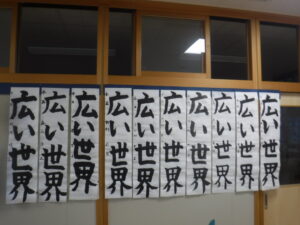 広い世界
広い世界
広い世界
広い世界
広い世界
広い世界
広い世界
広い世界
広い世界
広い世界